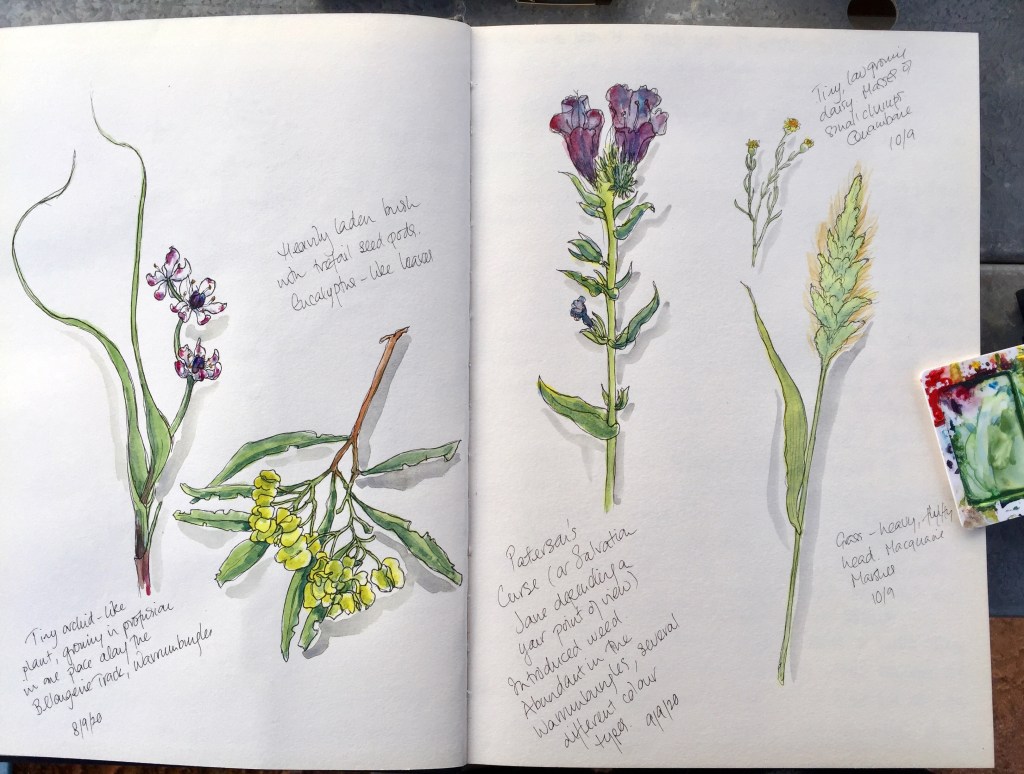 Heavily laden bush
with trefoil seed pods.
Eucalyptus-like leaves
Tiny orchid-like
plant, growing in profusion
in one place along the
Belougerie Track, Warrumbungles
8/9/20
Paterson's
Curse (or Salvation
Jane depending on
your point of view)
Introduced weed
Abundant in the
Warrumbungles, several
different colour
types. 9/9/20
Tiny, low growing
daisy
small clumps
Quambone
10/9
Grass - heavy, fluffy
head. Macquarie
Marshes
10/9